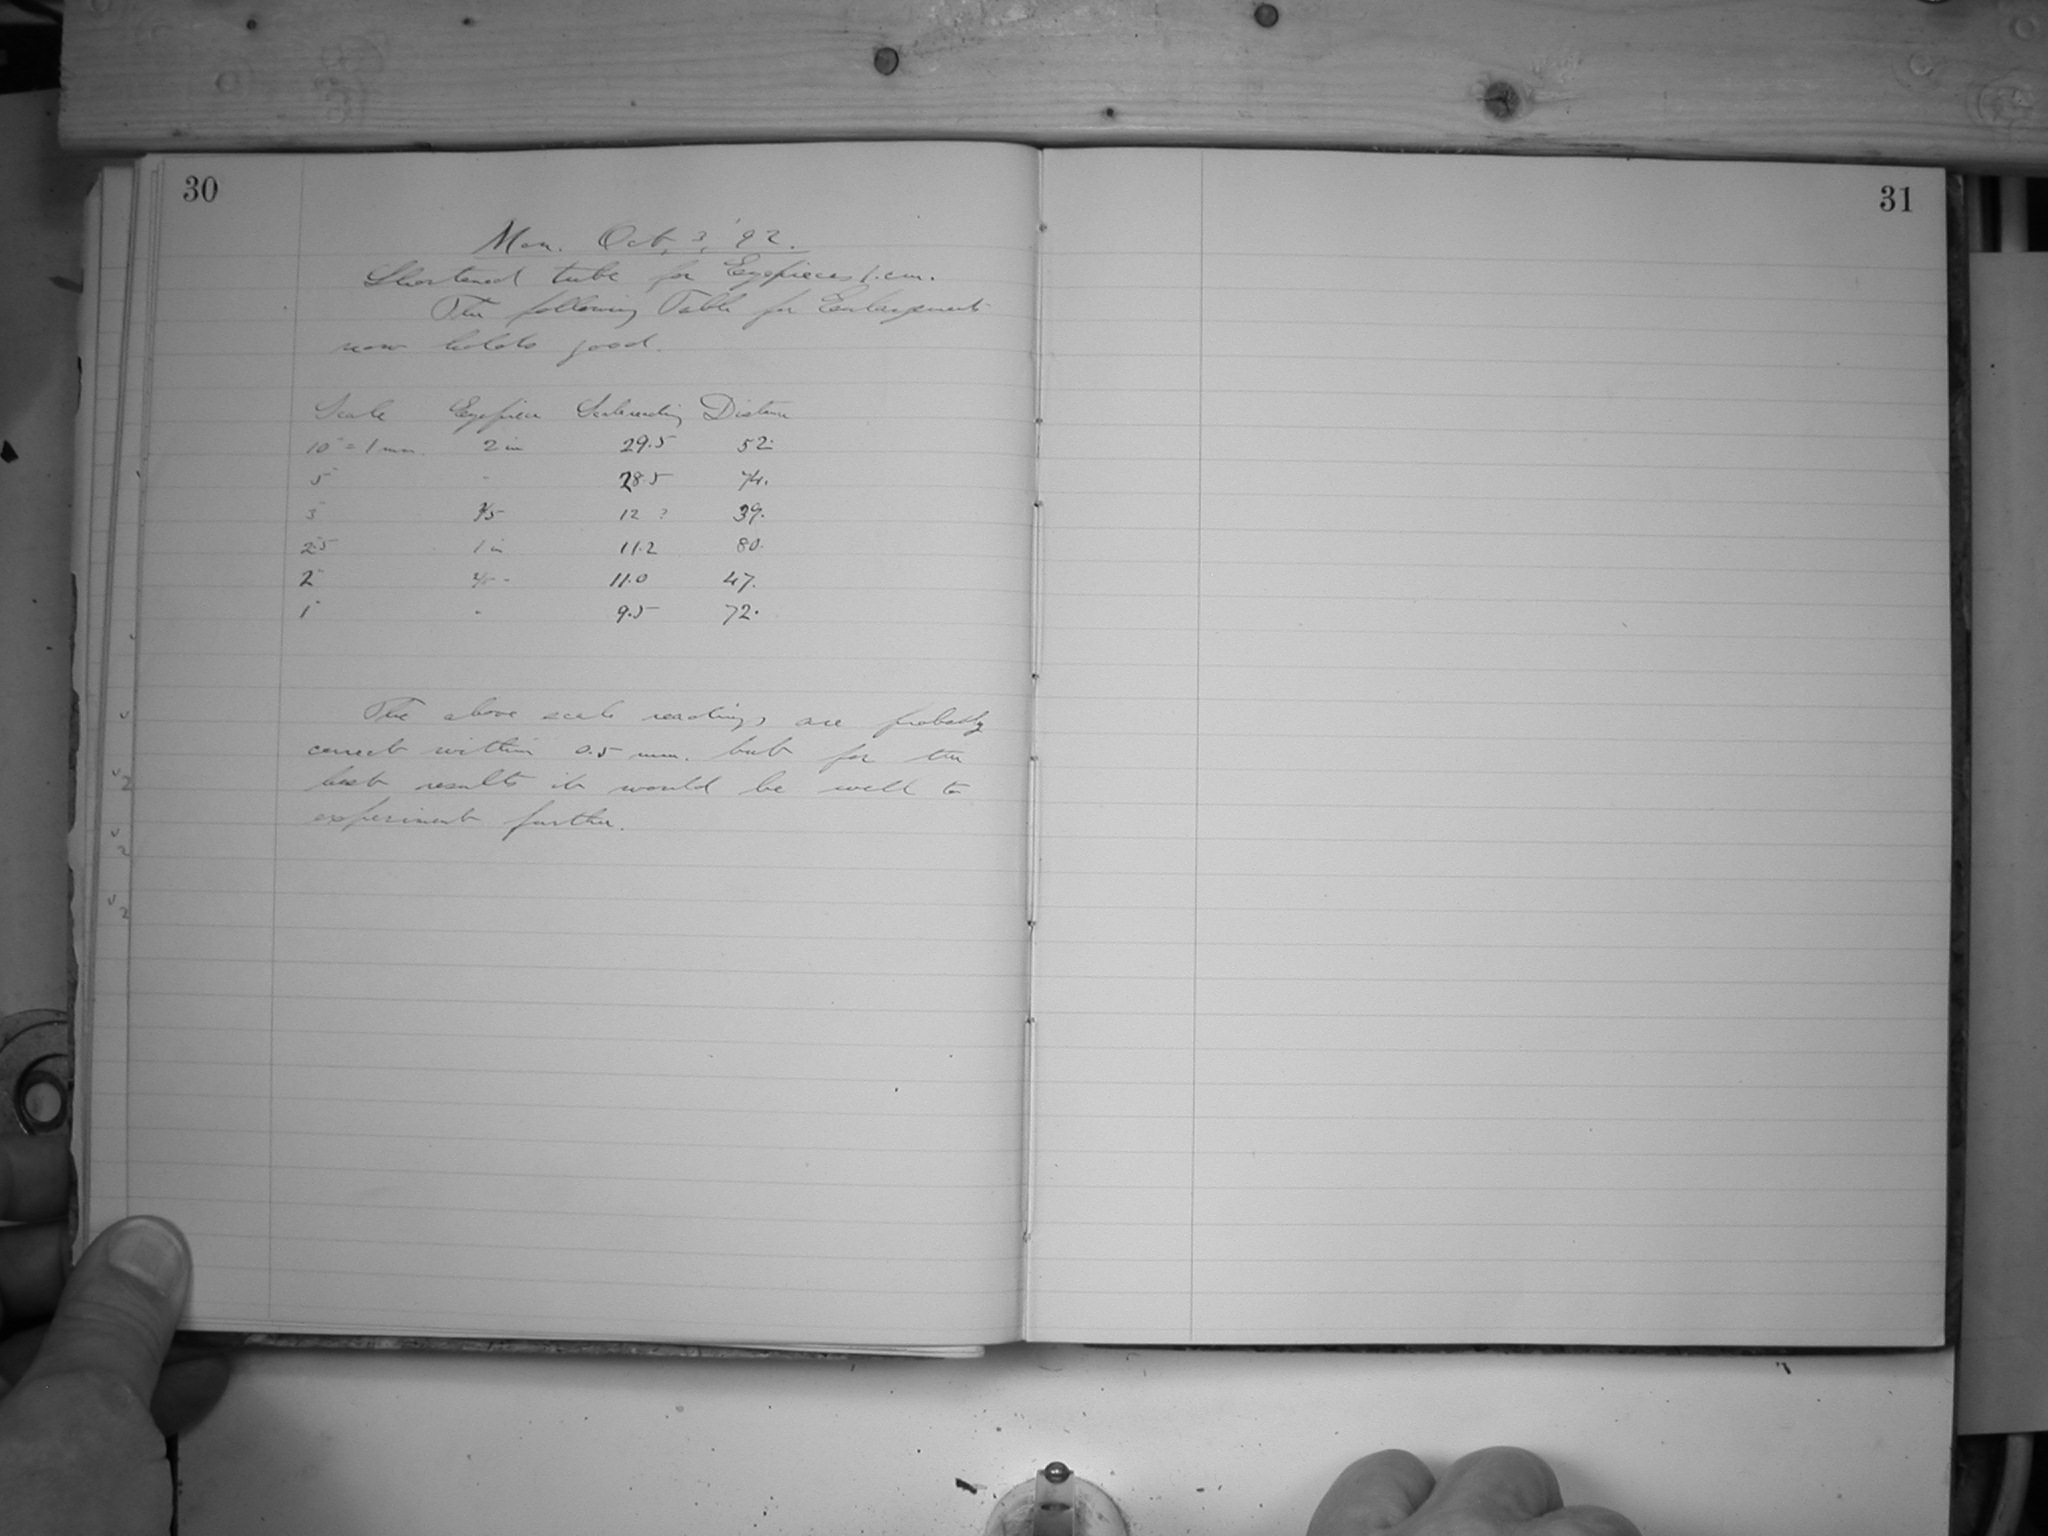 30
Mon. Oct. 3, '92.
Shortened tube for Eyepieces 1. cm.
The following Table for Enlargements
now holds good.
Scale Eyepiece Scalereading Distance
10" = 1 mm. 2 in 29.5 52.
5" " 28.5 74.
3" 12 ? 39.
2.5" 1 in 11.2 80.
2" 11.0 47.
1" " 9.5 72.
The above scale readings are probably
correct within 0.5 mm. but for the
best results it would be well to
experiment further.
31